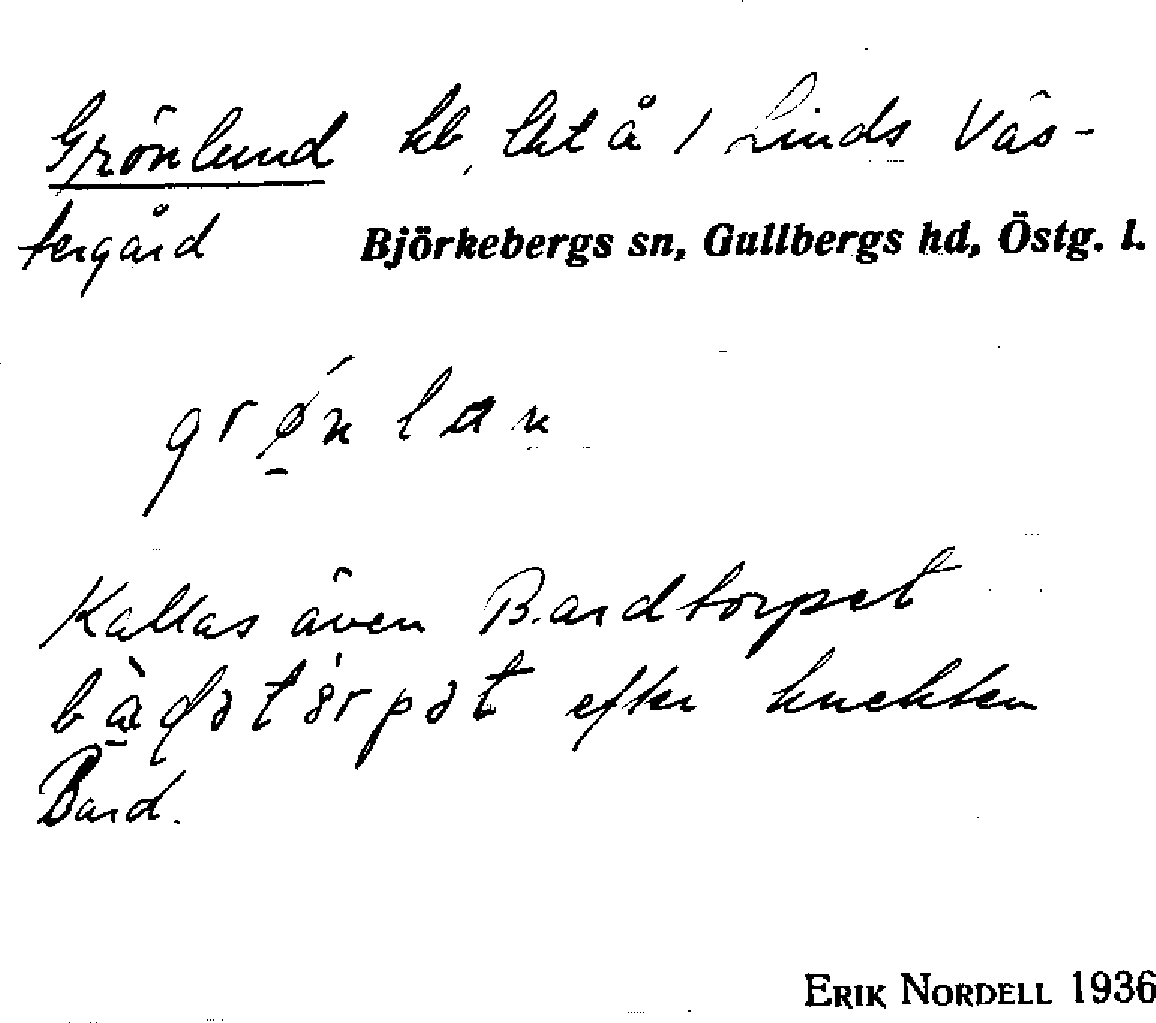 Grönlund hb, lht å 1 Linds Väs-
tergård Björkebergs sn, Gullbergs hd, Östg. l.
Kallas även Bardtorpet
efter knekten
Bard.
ERIK NORDELL 1936